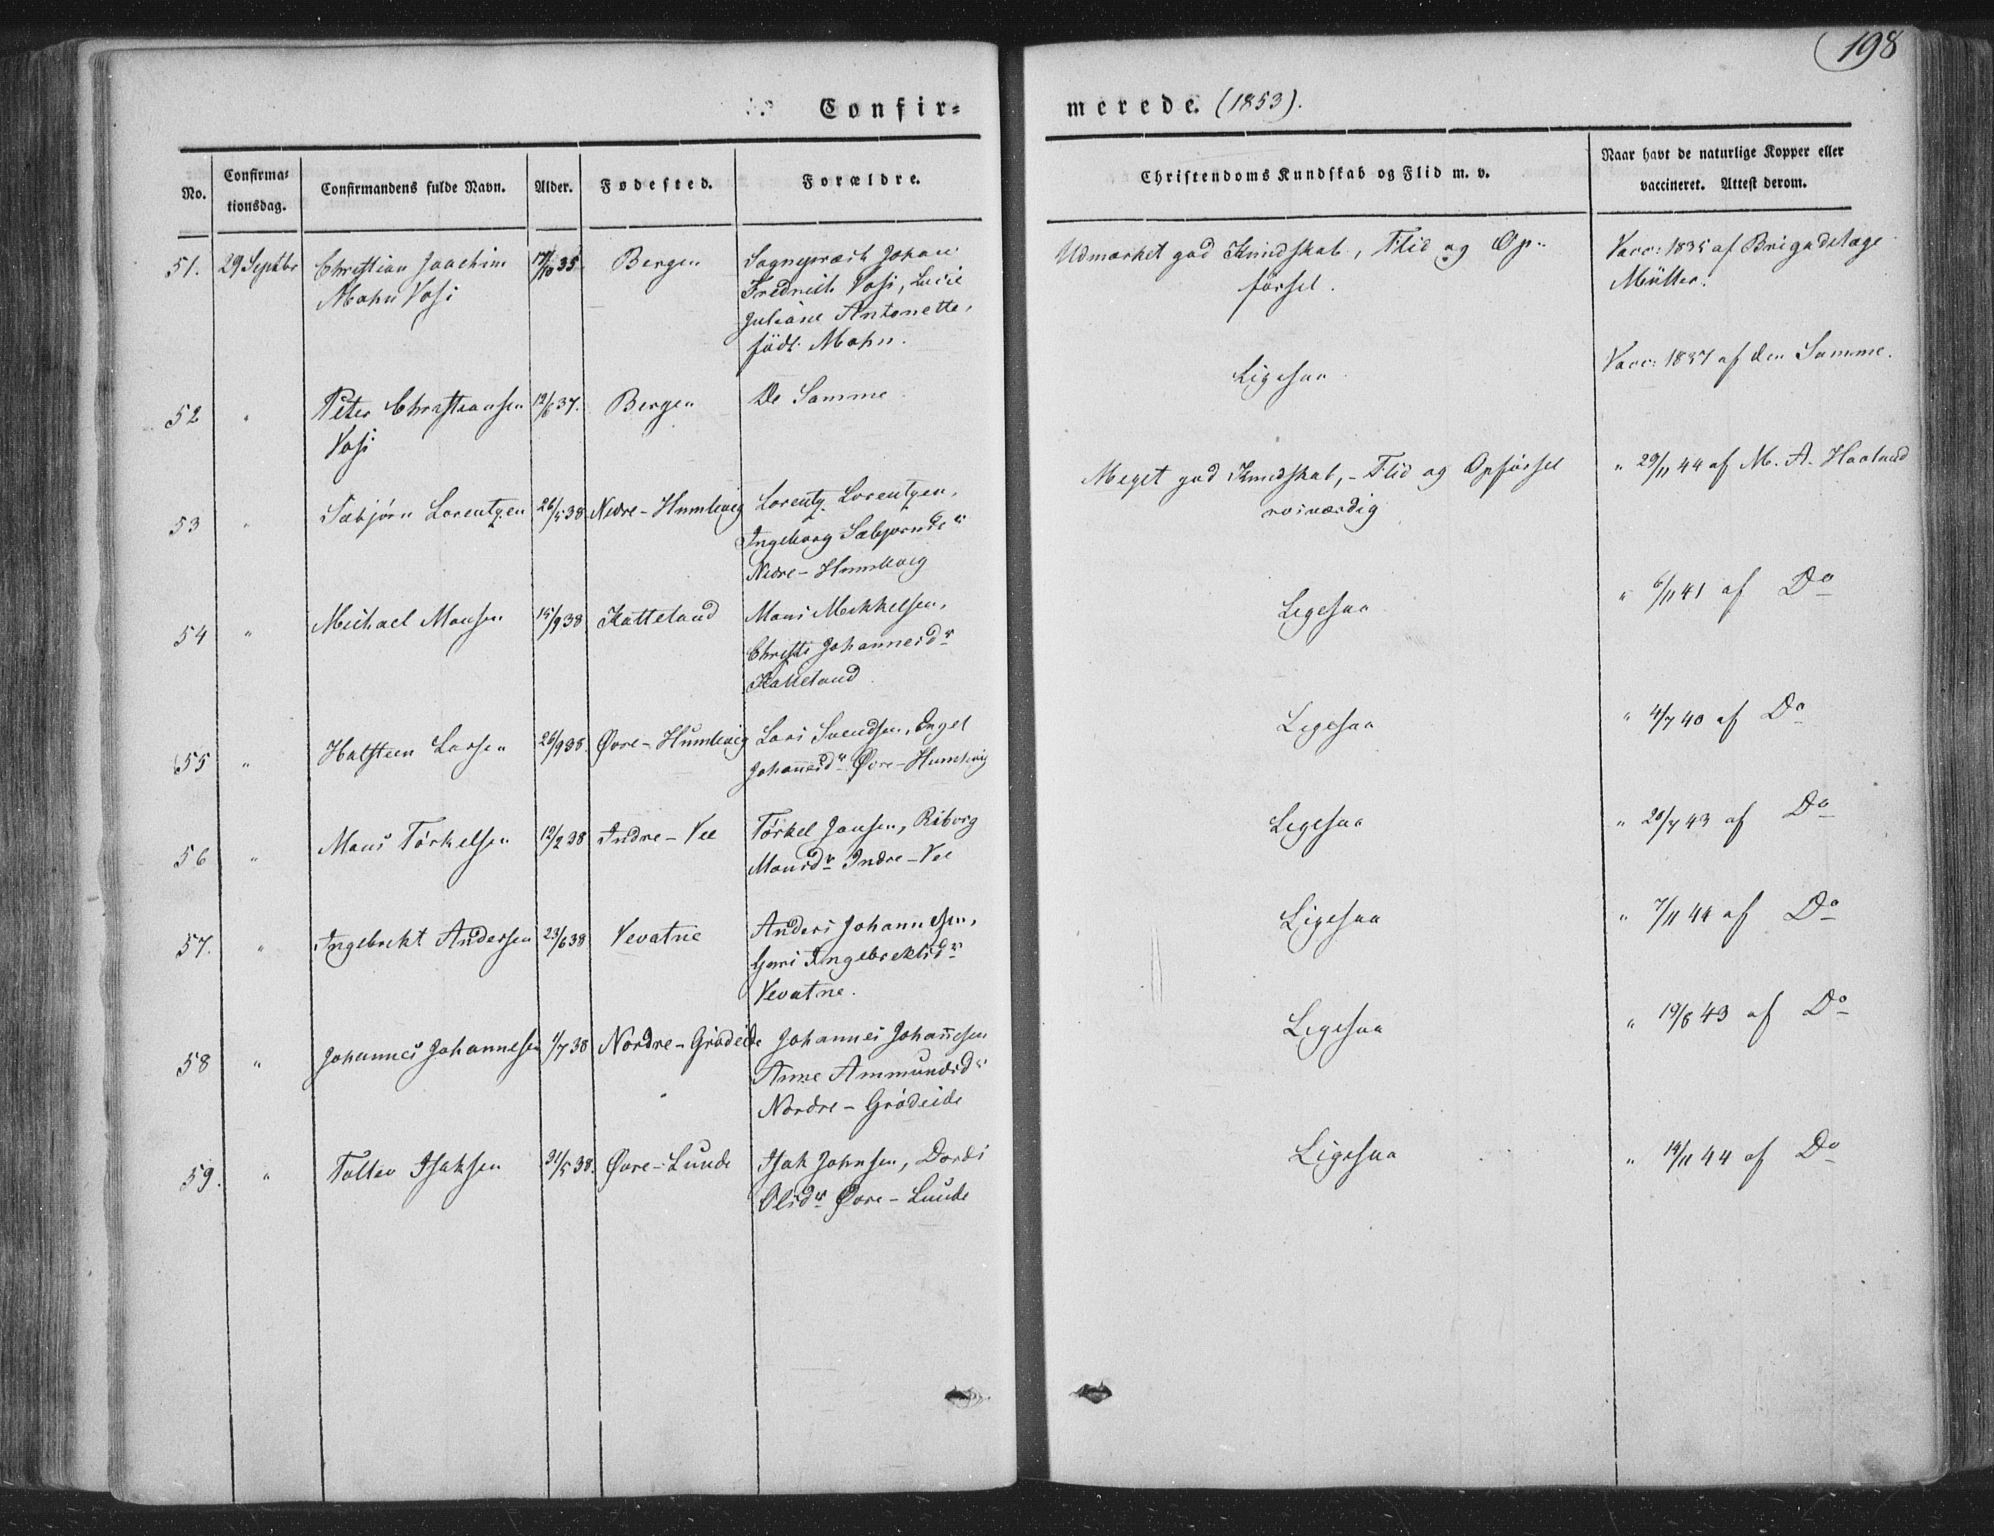 198
Confir-
merede. (1853).
No.
Confirma-
tionsdag.
Confirmandens fulde Navn.
Alder.
Fødested.
Forældre.
Christendoms Kundskab og Flid m. v.
Naar havt de naturlige Kopper eller
vaccineret. Attest derom.
51. 29 Septbr Christian Joachim 35 Bergen Sognepræst Johan Udmærket god Kundskab, Flid og Op- Vacc: 1835 af Brigadelæge
Mohn Vosś Fredrich Vosś, Lucie førsel. Müller.
Juliane Antonette,
født Mohn.
52 " Peter Christiansen 12/6 37. Bergen De Samme Ligesaa Vacc: 1837 af den Samme.
Vosś
53 " Sæbjørn Lorentzen 26/5 38 Nedre-Humlevig Lorentz Lorentzen, Meget god Kundskab, - Flid og Opførsel " 29/11 44 af M. A. Haaland
Ingeborg Sæbjørnsdr rosværdig
Nedre-Humlevig
54 " Michael Monsen 15/9 38 Katteland Mons Mekkelsen, Ligesaa " 6/11 41 af Do
Christi Johannesdr
Katteland
55 " Halsteen Larsen 26/9 38. Øvre-Humlevig Lars Svendsen, Engel Ligesaa " 4/7 40 af Do
Johannesdr Øvre-Humlevig
56 " Mons Tørkelsen 12/2 38 Indre-Vee Tørkel Jansen, Riborg Ligesaa " 20/7 43 af Do
Monsdr Indre-Vee
57. " Ingebrekt Andersen 23/6 38 Vevatne Anders Johannesen, Ligesaa " 7/11 44 af Do
Guri Ingebrektsdr
Vevatne.
58 " Johannes Johannesen 1/7 38 Nordre-Grødeide Johannes Johannesen Ligesaa " 19/8 43 af Do
Anne Ammundsdr
Nordre-Grødeide
59. " Tollev Isaksen 31/5 38. Øvre-Lunde Isak Johnsen, Dordi Ligesaa " 14/11 44 af Do
Olsdr Øvre-Lunde